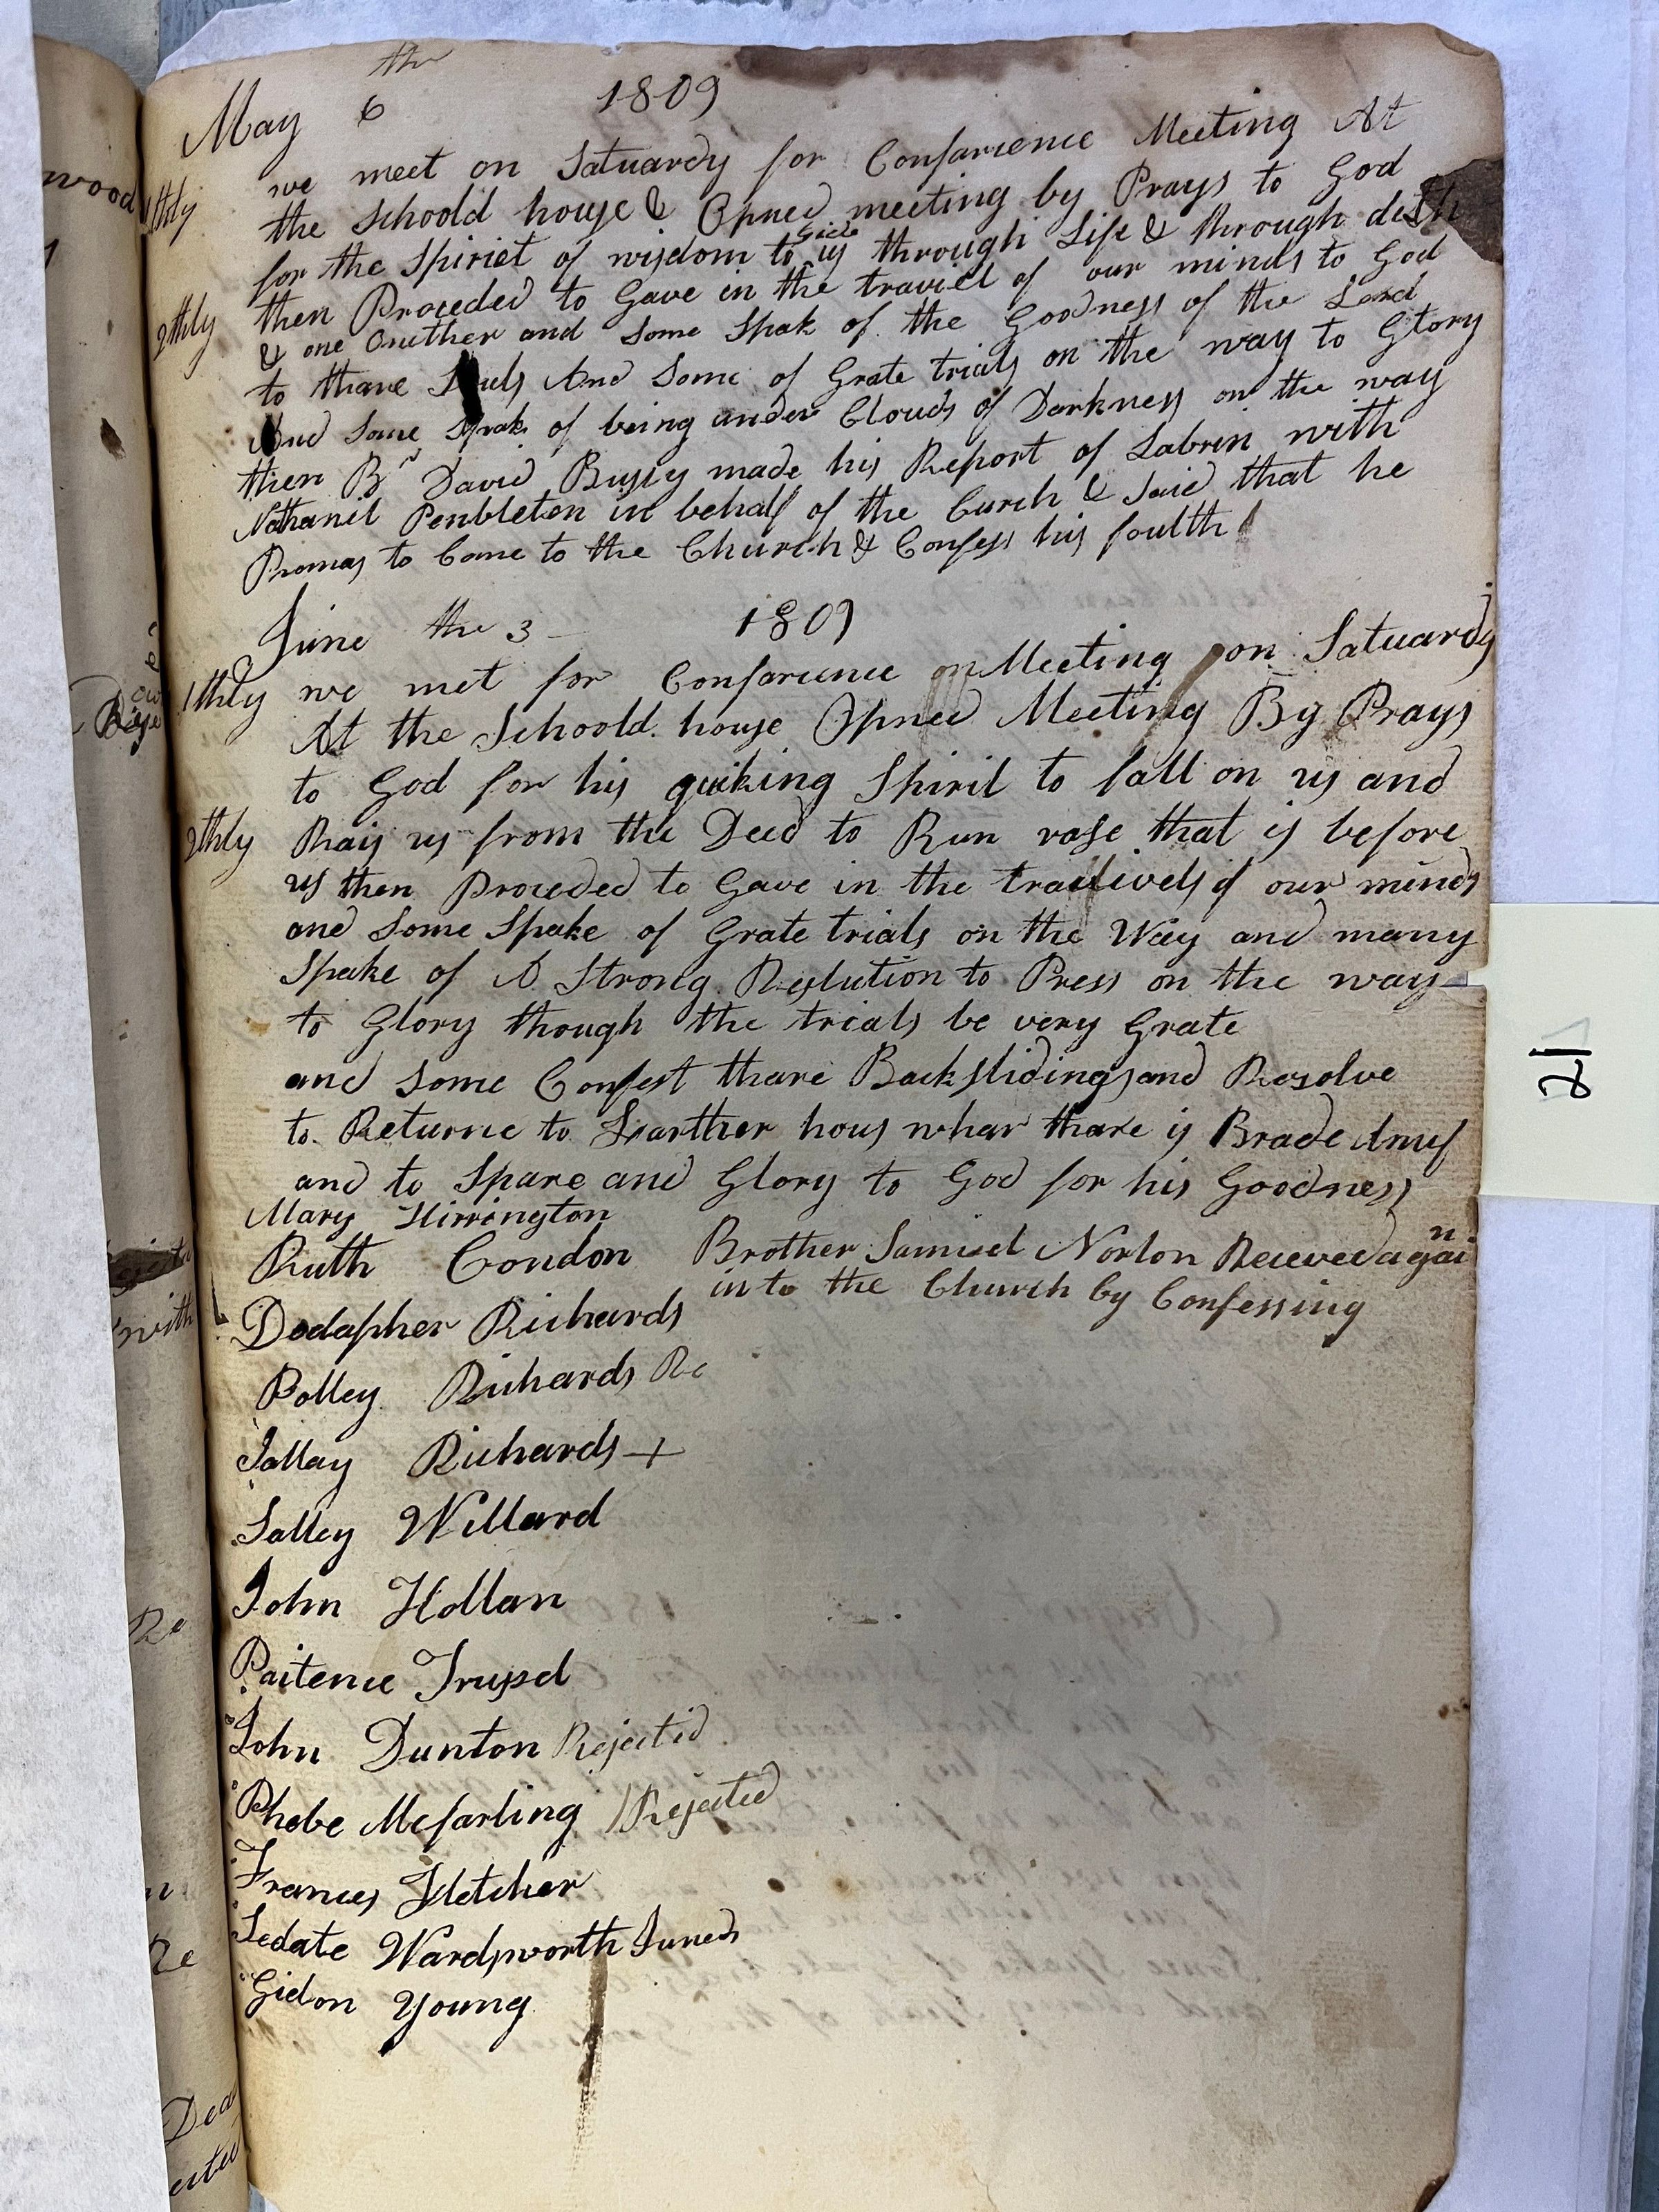 the
May 6 1809
1thly we meet on Satuardy for Confarience Meeting At
the Schoold house & Opned meeting by Prays to God
for the Spiriet of wisdom to Gide us through Life & through deth
2thly then Proceded to Gave in the traviel of our minds to God
& one Onuther and Some Spak of the Goodness of the Lord
to thare Souls And Some of Grate trials on the way to Glory
And Some Spak of being under Clouds of Darkness on the way
then Br David Bussy made his Report of Labren with
Nathanil Penbleton in behalf of the Curch & Said that he
Promas to Come to the Church & Confess his foulth
June the 3 1809
1thly we met for Confarience Meeting on Satuardy
At the Schoold house Opned Meeting By Prays
to God for his quiking Spirit to fall on us and
2thly Rais us from the Deed to Run rase that is before
us then Proceded to Gave in the of our minds
and Some Spake of Grate trials on the Way and many
Spake of A Strong Reslution to Press on the way
to Glory though the trials be very Grate
and Some Confest thare Backslidings and Resolve
to Returne to hous whar thare is Brade
and to Spare and Glory to God for his Goodness
Mary Hirrington
Ruth Condon Brother Samuel Norton Receved again
in to the Church by Confessing
Dodapher Richards
Polley Richards Re
Sallay Richards +
Salley Willard
John Hollan
Paitence
John Dunton Rejectid
Phebe Mcfarling Rejected
Frances Fletcher
Sedate Wardsworth
Gidon Young
21
wood
with
Re
Re